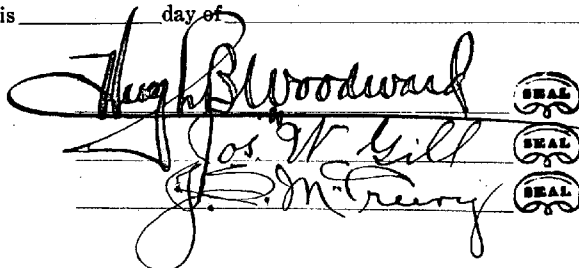 is day of
Hugh B Woodward SEAL
Jos. W Gill SEAL
SEAL